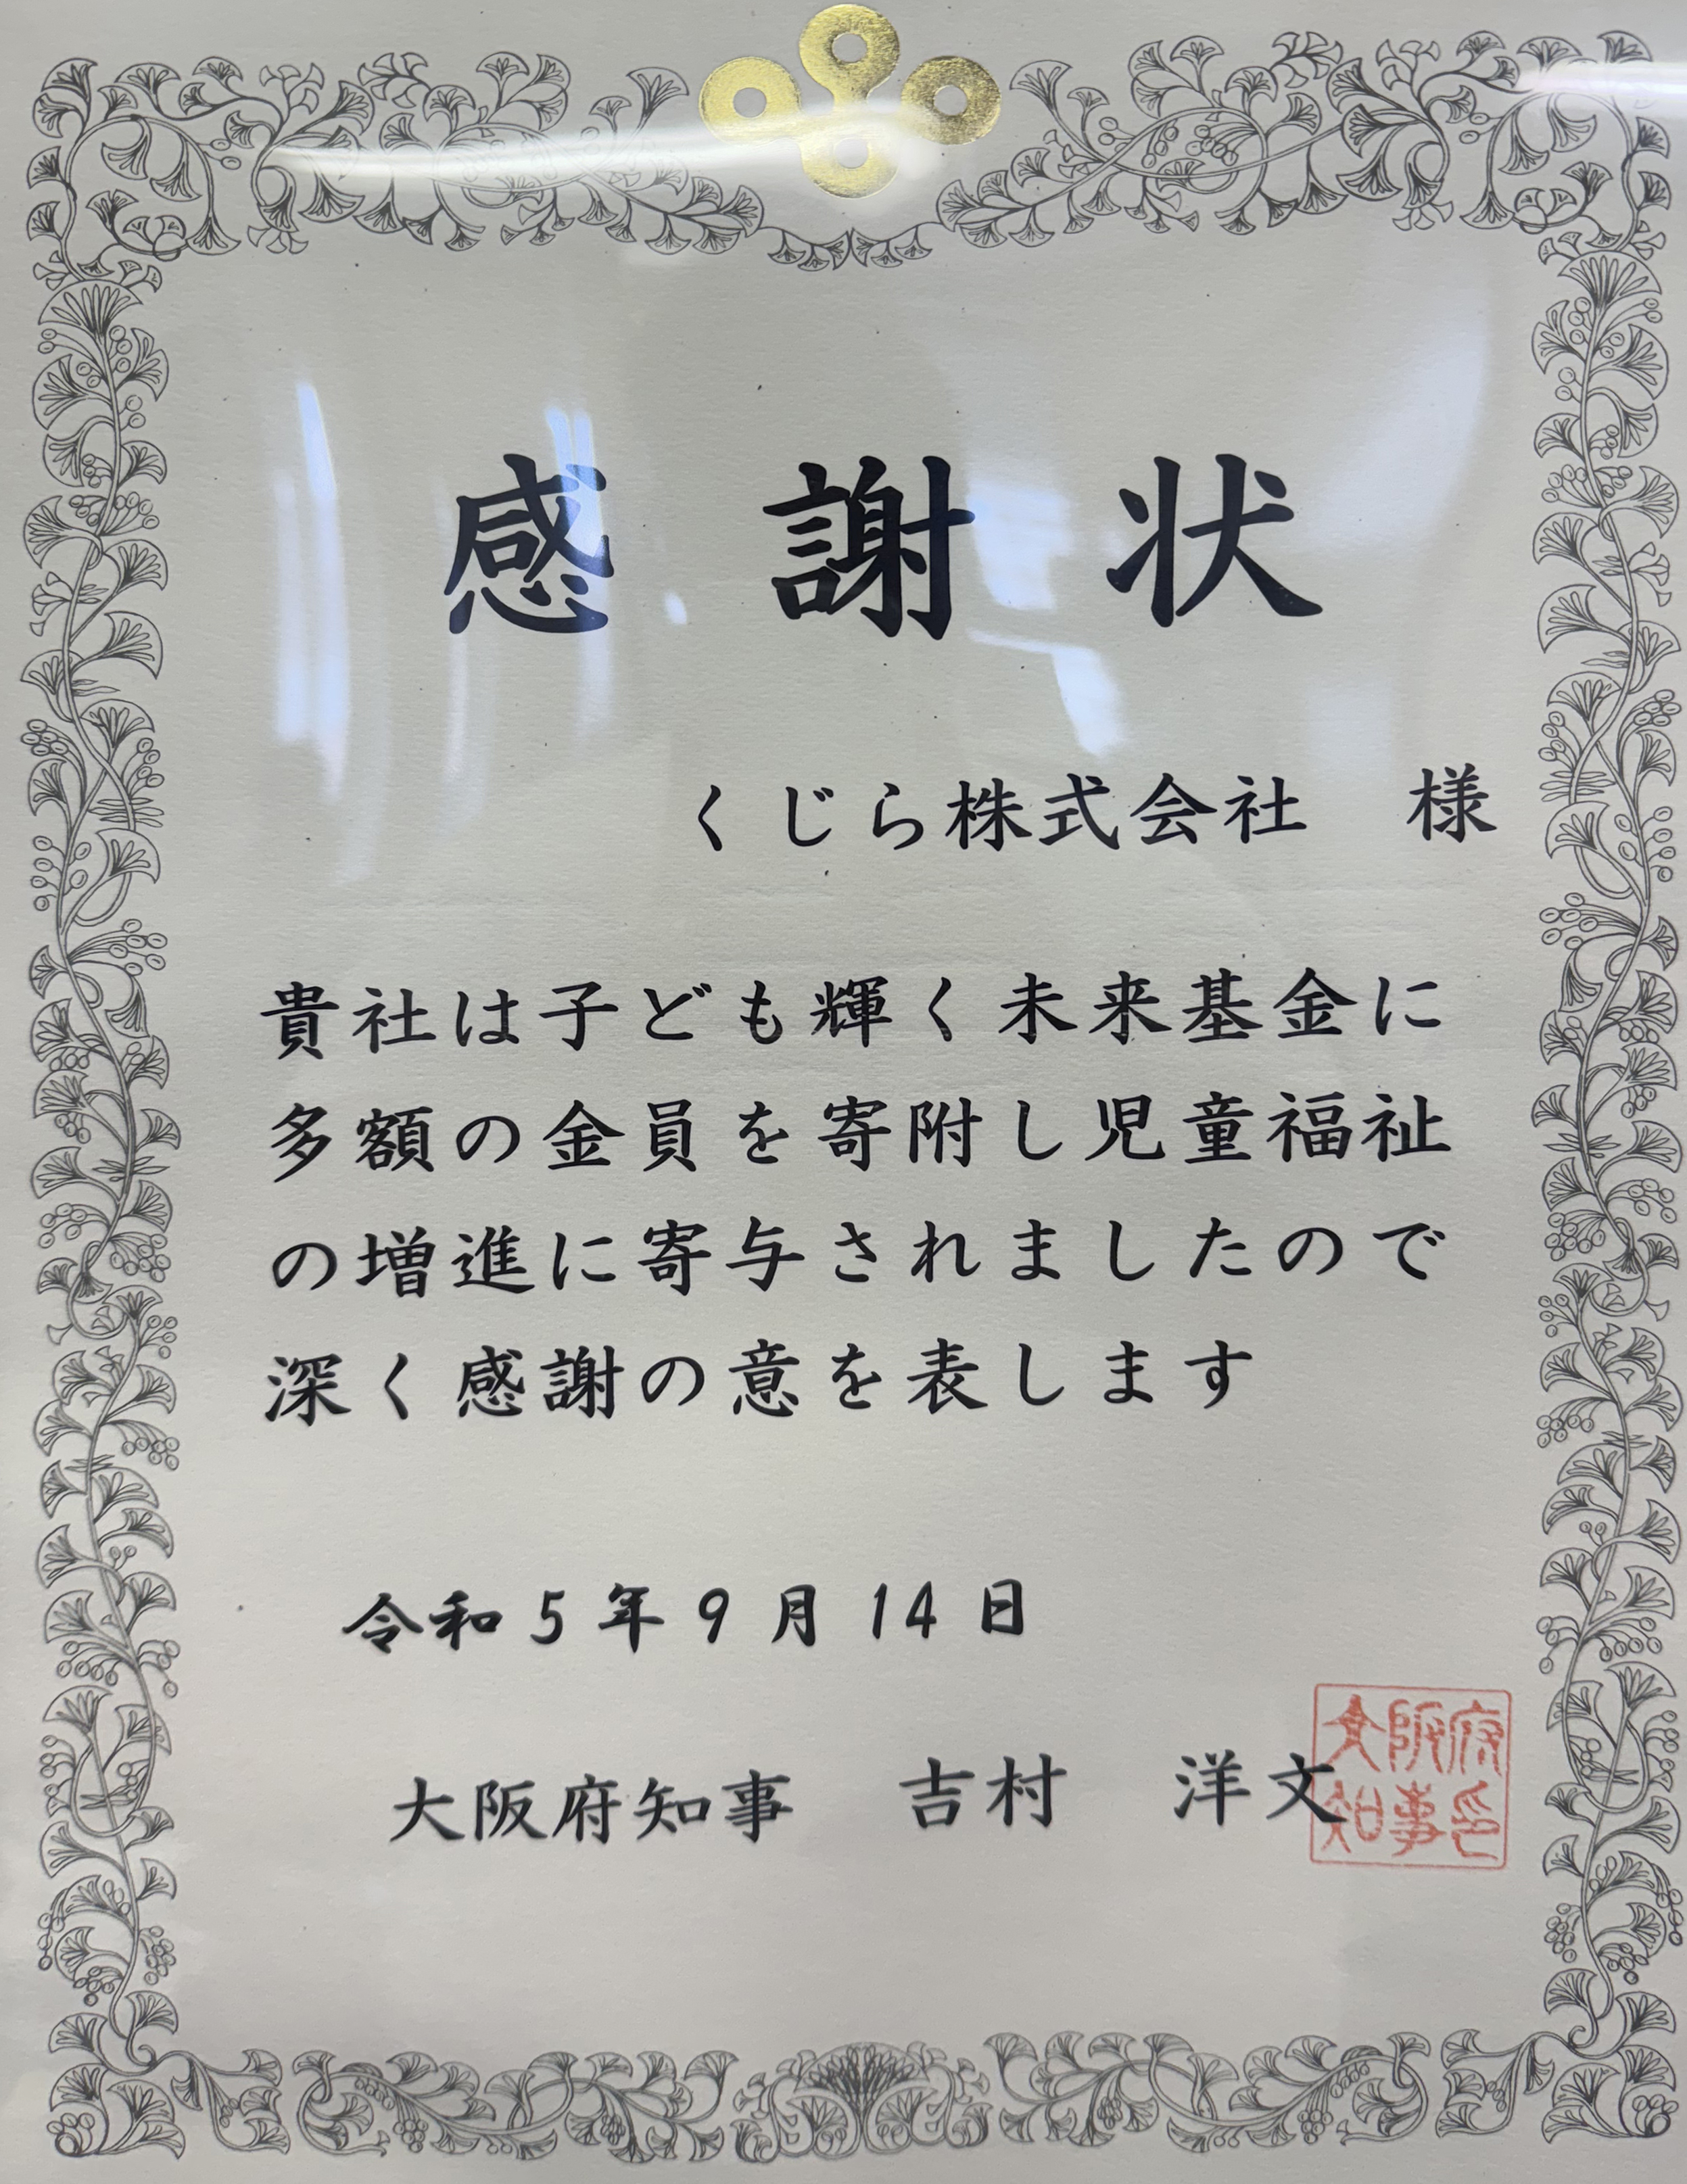 感謝状
くじら株式会社 様
貴社は子ども輝く未来基金に
多額の金員を寄附し児童福祉
の増進に寄与されましたので
深く感謝の意を表します
令和5年9月14日
大阪府知事 吉村 洋文
大阪府
知事印